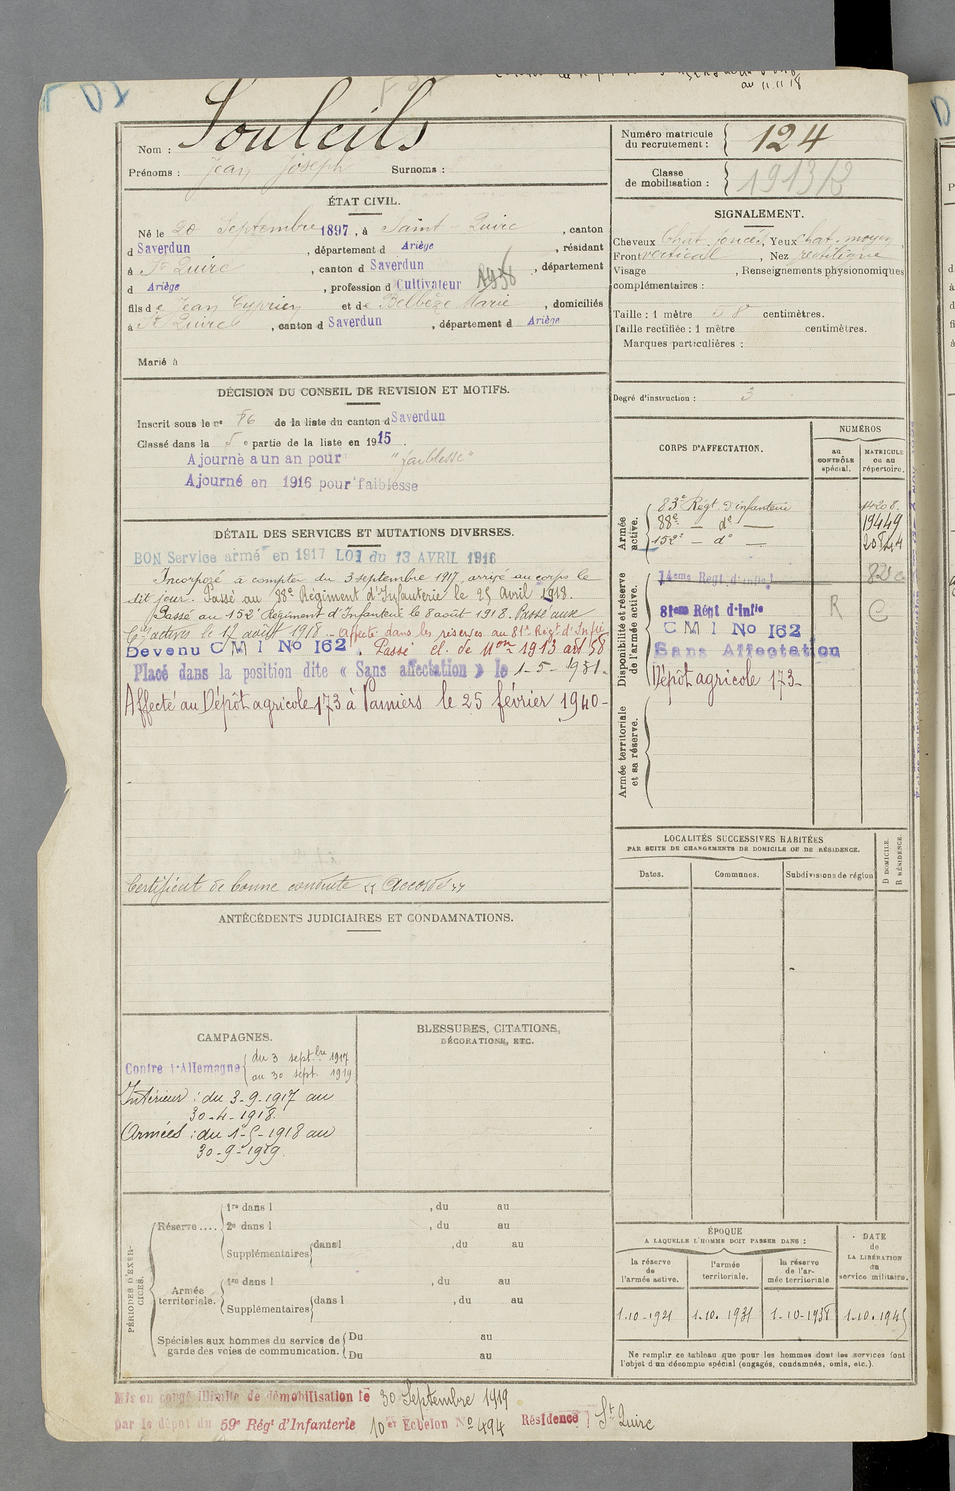 au 11.11.18
Nom : Souleils
Prénoms : Jean Joseph Surnoms :
Numéro matricule du recrutement : 124
Classe de mobilisation : 1913/8
ÉTAT CIVIL.
Né le 20 Septembre 1897, à Saint-Quirc, canton
d Saverdun, département d Ariège, résidant
à St Quirc, canton d Saverdun, département
d Ariège, profession d Cultivateur
fils de Jean Cyprien et de Belbèze Marie, domiciliés
à St Quirc, canton d Saverdun, département d Ariège
Marié à
SIGNALEMENT.
Cheveux Chat. foncés, Yeux chat. moyen
Front vertical, Nez rectiligne
Visage , Renseignements physionomiques
complémentaires :
Taille : 1 mètre 58 centimètres.
Taille rectifiée : 1 mètre centimètres.
Marques particulières :
Degré d'instruction : 3
DÉCISION DU CONSEIL DE REVISION ET MOTIFS.
Inscrit sous le no 76 de la liste du canton d Saverdun
Classé dans la 5e partie de la liste en 1915.
Ajourné a un an pour "faiblesse"
Ajourné en 1916 pour faiblesse
DÉTAIL DES SERVICES ET MUTATIONS DIVERSES.
BON Service armé en 1917 LOI du 13 AVRIL 1916
Incorporé à compter du 3 septembre 1917, arrivé au corps le
dit jour. Passé au 88e Régiment d'Infanterie le 25 Avril 1918.
Passé au 152e Régiment d'Infanterie le 8 août 1918. Passé aux
Cies actives le 17 août 1918. Affecté dans les réserves au 81e Régt d'Infie
Devenu C M I No 162. Passé cl. de Mon 1913 art. 58
Placé dans la position dite « Sans affectation » le 1-5-1931.
Affecté au Dépôt agricole 173 à Pamiers le 25 février 1940-
Certificat de bonne conduite "Accordé"
CORPS D'AFFECTATION.
NUMÉROS
au CONTRÔLE spécial.
MATRICULE ou au répertoire.
Armée active.
83e Régt d'infanterie 14208.
88e — do — 19449
152e — do — 20544
Disponibilité et réserve de l'armée active.
14eme Régt d'infie
81eme Régt d'Infie R C
C M I No 162
Sans Affectation
Dépôt agricole 173-
Armée territoriale et sa réserve.
LOCALITÉS SUCCESSIVES HABITÉES
PAR SUITE DE CHANGEMENTS DE DOMICILE OU DE RÉSIDENCE.
Dates. Communes. Subdivisions de région
D DOMICILE.
R RÉSIDENCE.
ANTÉCÉDENTS JUDICIAIRES ET CONDAMNATIONS.
CAMPAGNES.
Contre l'Allemagne du 3 septbre 1917
au 30 sept. 1919
Intérieur : du 3-9-1917 au
30-4-1918.
Armées : du 1-5-1918 au
30-9-1919.
BLESSURES, CITATIONS,
DÉCORATIONS, ETC.
PÉRIODES D'EXERCICES.
Réserve .... 1re dans l , du au
2e dans l , du au
Supplémentaires dans l , du au
Armée territoriale. 1re dans l , du au
Supplémentaires dans l , du au
Spéciales aux hommes du service de Du au
garde des voies de communication. Du au
ÉPOQUE
A LAQUELLE L'HOMME DOIT PASSER DANS :
la réserve de l'armée active.
l'armée territoriale.
la réserve de l'armée territoriale
DATE de LA LIBÉRATION du service militaire.
1-10-1921 1-10-1931 1-10-1938 1-10-1945
Ne remplir ce tableau que pour les hommes dont les services font
l'objet d'un décompte spécial (engagés, condamnés, omis, etc.).
Mis en congé illimité de démobilisation le 30 Septembre 1919
par le dépôt du 59e Régt d'Infanterie 10e Echelon No 494 Résidence St Quirc